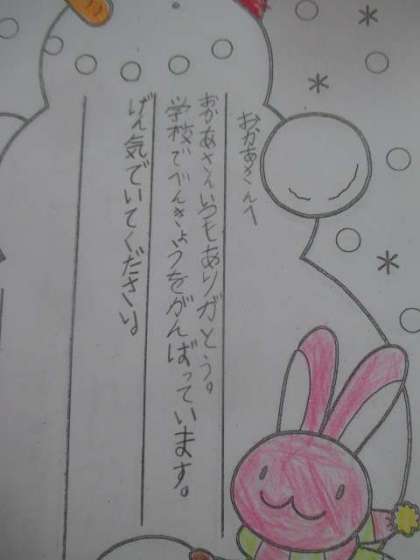 おかあさんへ
おかあさんいつもありがとう。
学校でべんきょうをがんばっています。
げん気でいてくださいよ